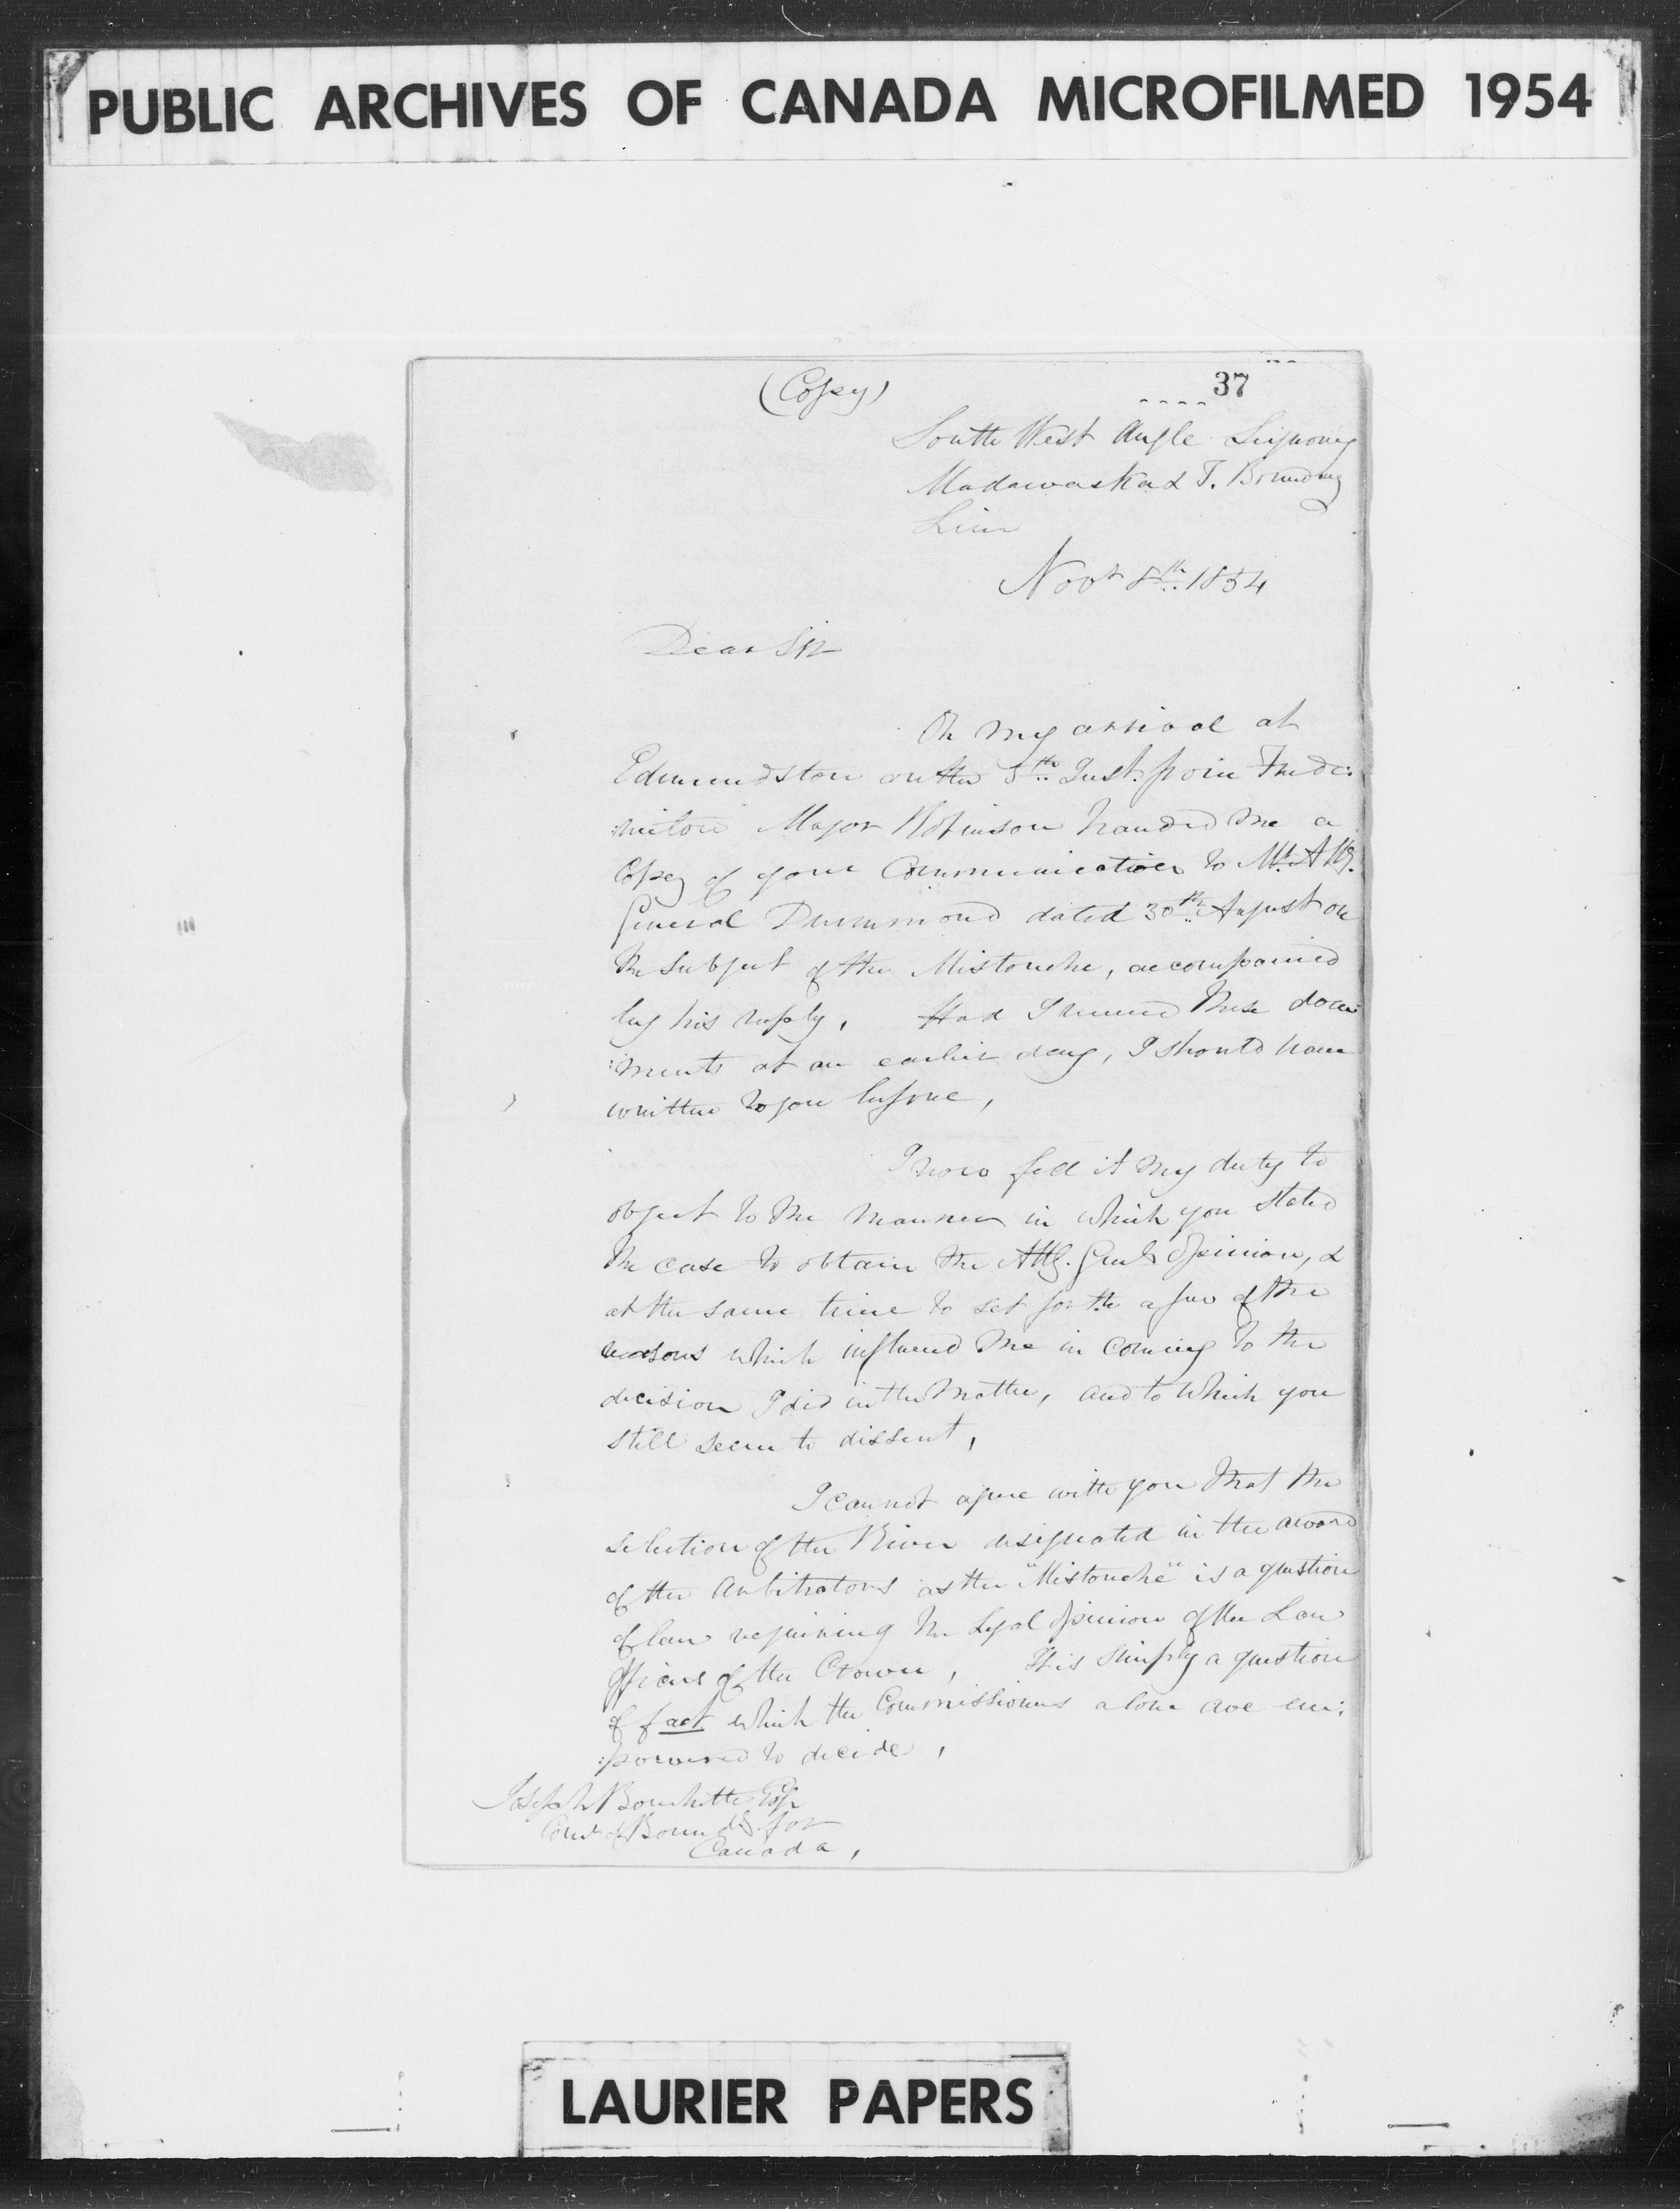 PUBLIC ARCHIVES OF CANADA MICROFILMED 1954
(Copy)
37
South West Angle Seignory
Madawaska & T. Boundary
Line
Novr 8th 1854
Dear Sir
On my arrival at
Edmundston on the 5th Inst. from Frede:
:ricton Major Robinson handed me a
Copy of your Communication to Mr. Atty.
General Drummond dated 30th August on
the subject of the Mistouche, accompanied
by his reply, Had I received these docu:
:ments at an earlier day, I should have
written to you before,
I now feel it my duty to
object to the manner in which you stated
the case to obtain the Atty. Genls opinion, &
at the same time to set forth a few of the
reasons which influenced me in coming to the
decision I did in the matter, and to which you
still seem to dissent,
I cannot agree with you that the
selection of the River designated in the award
of the Arbitrators as the "Mistouche" is a question
of law requiring the Legal opinion of the Law
officers of the Crown, It is simply a question
of fact which the Commissioners alone are em:
:powered to decide,
Joseph Bouchette Esqr
Comr of Boundy for
Canada,
LAURIER PAPERS